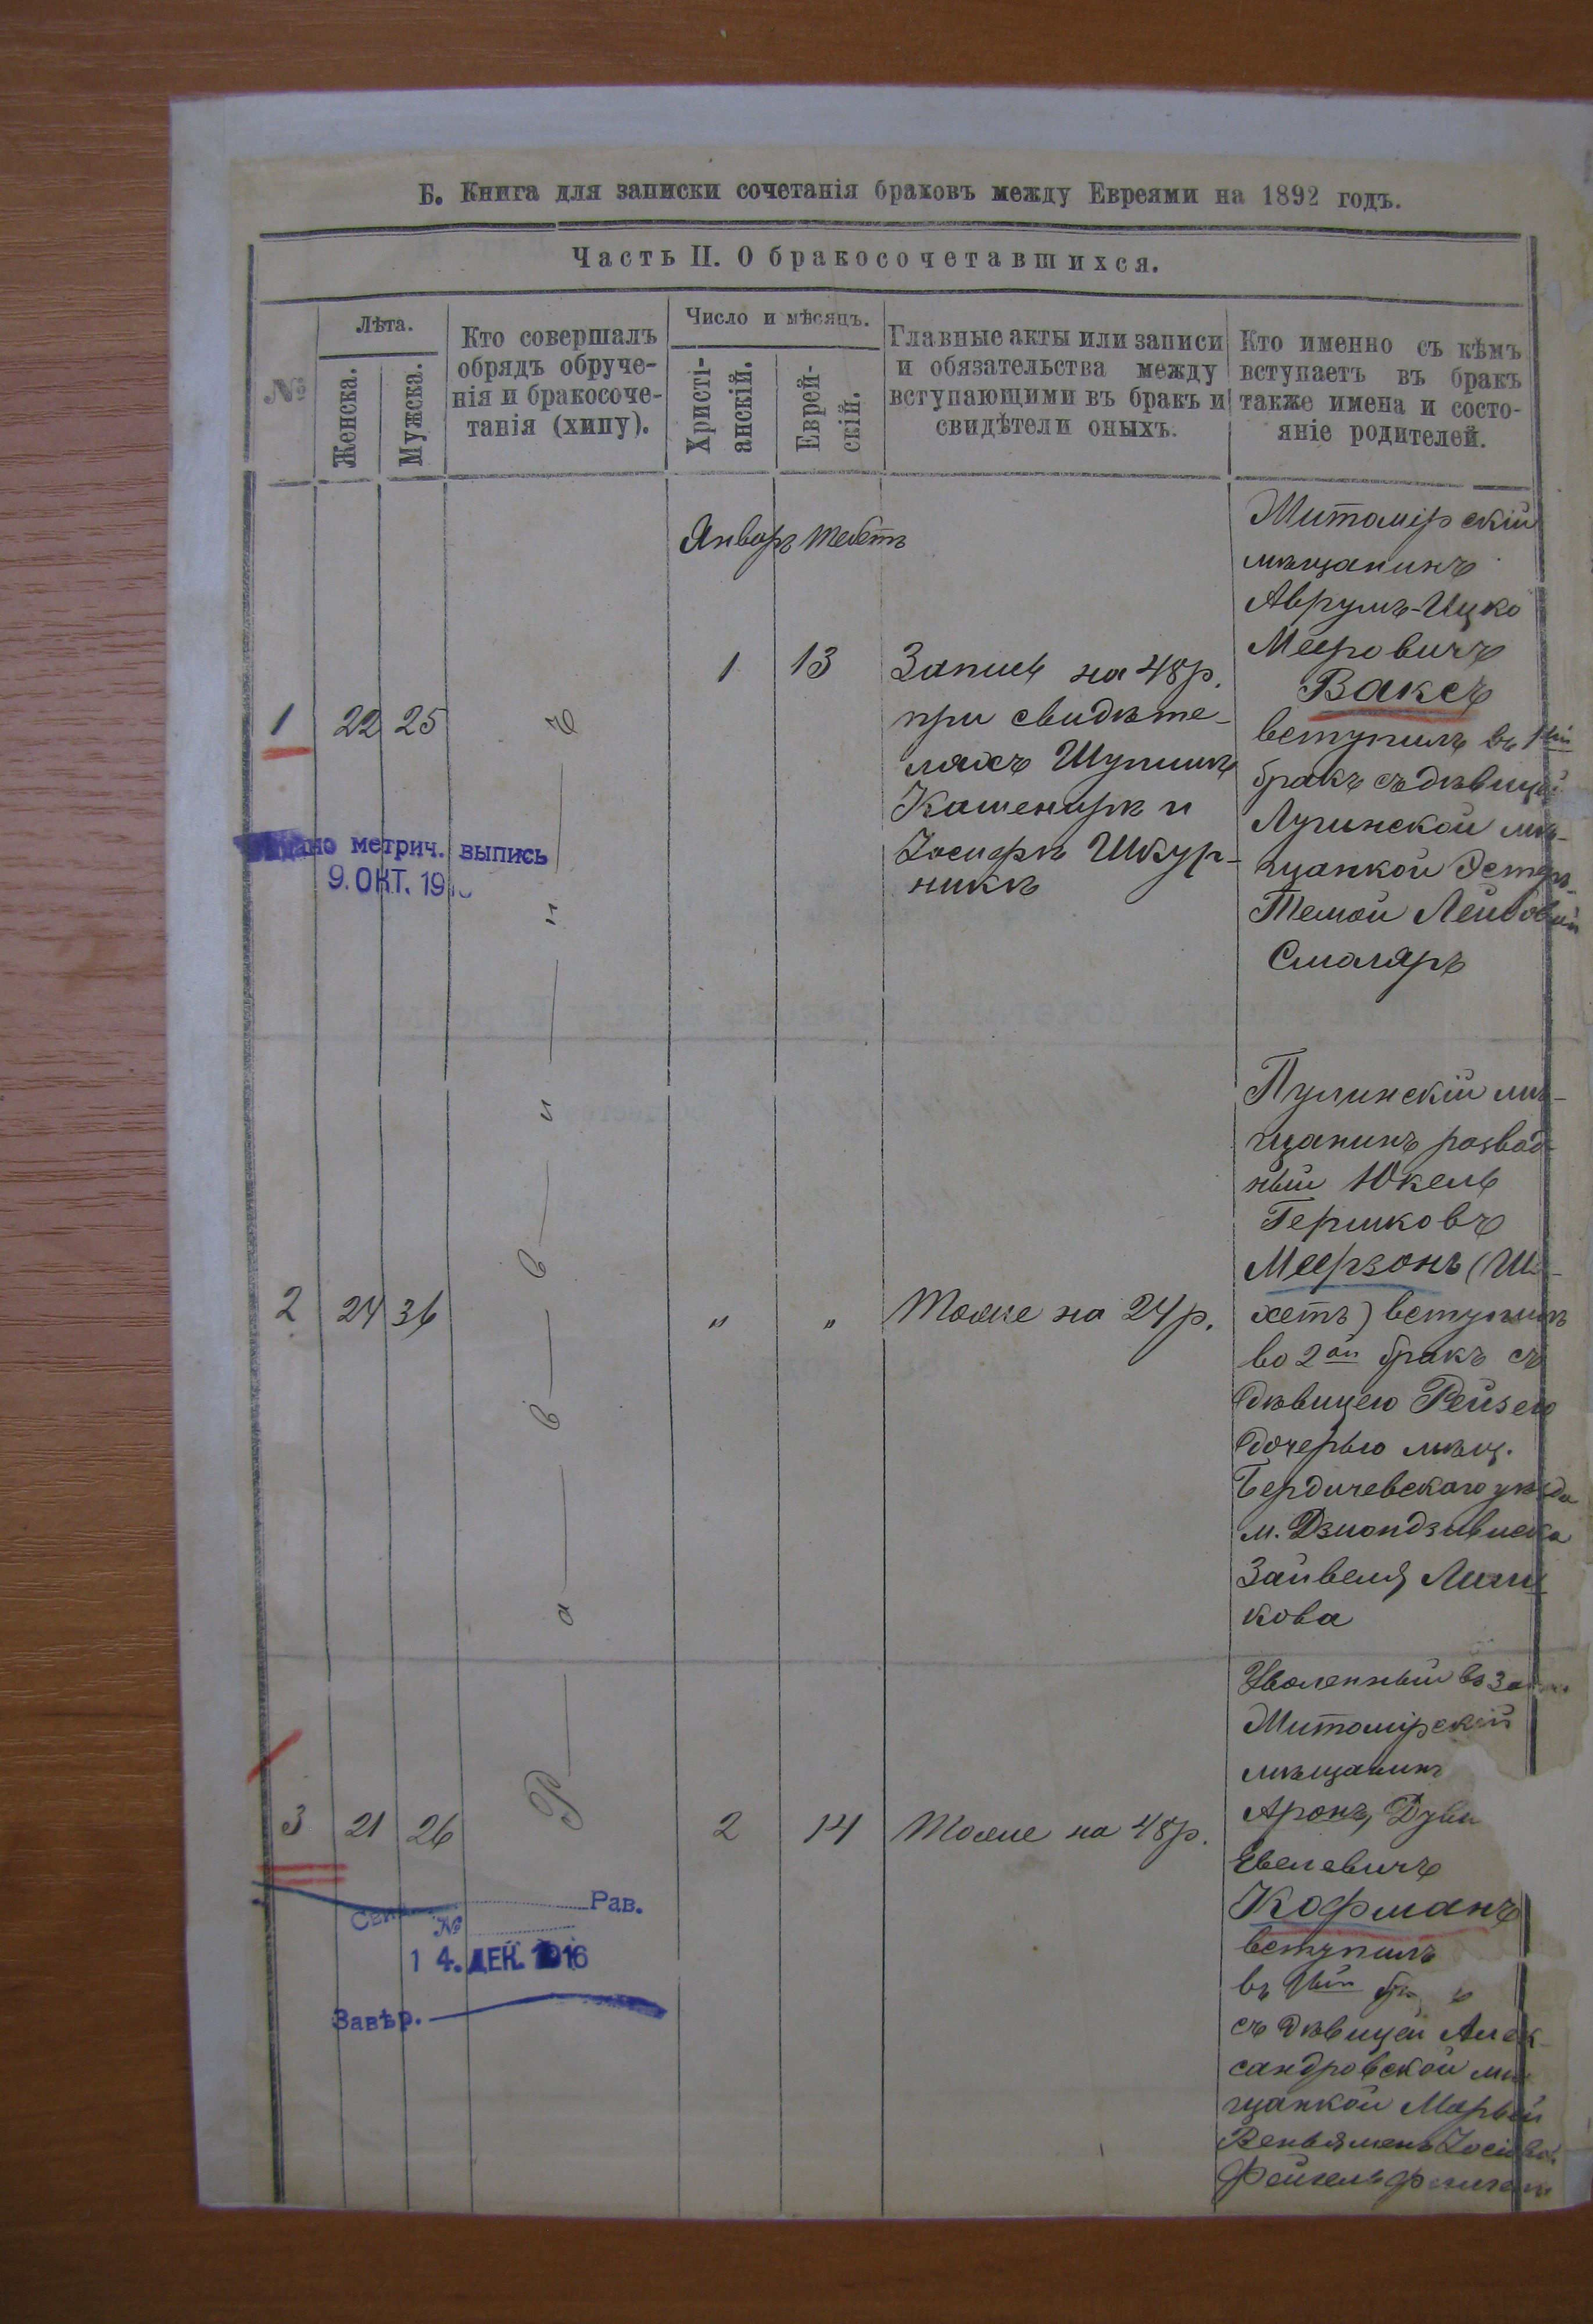 Б. Книга для записки сочетанія браковъ между Евреями на 1892 годъ.
Часть II. О бракосочетавшихся.
№
Лѣта.
Женска.
Мужска.
Кто совершалъ
обрядъ обруче-
нія и бракосоче-
танія (хипу).
Число и мѣсяцъ.
Христі-
анскій.
Еврей-
скій.
Главные акты или записи
и обязательства между
вступающими въ бракъ и
свидѣтели оныхъ.
Кто именно съ кѣмъ
вступаетъ въ бракъ
также имена и состо-
яніе родителей.
Январь Тебетъ
Р а в в и н ъ
1 22 25
1 13
Запись на 48 р.
при свидѣте-
ляхъ Шупимъ
Кашенирѣ и
Іосифѣ Шкур-
никѣ
Житомірскій
мѣщанинъ
Аврумъ-Ицко
Мееровичъ
Ваксъ
вступилъ въ 1ый
бракъ съ дѣвицей
Лугинской мѣ-
щанкой Эстеръ-
Темой Лейбовой
Смоляръ
метрич. выпись
9. ОКТ. 19
2 24 36
" "
Тоже на 24 р.
Пулинскій мѣ-
щанинъ развод-
ный Юкель
Гершковъ
Меерзонъ (Шо-
хетъ) вступилъ
во 2ой бракъ съ
дѣвицею Рейзею
дочерью мѣщ.
Бердичевскаго уѣзда
м. Дзиондзивиска
Зайвеля Лиш
кова
3 21 26
2 14
Тоже на 48 р.
Уволенный въ
Житомірскій
мѣщанинъ
Аронъ, Дуви
Евелевичъ
Кофманъ
вступилъ
въ 1ый
съ дѣвицей Алек-
сандровской мѣ
щанкой Марьей
Веньяменъ
Рав.
№
14. ДЕК. 1916
Завѣр.